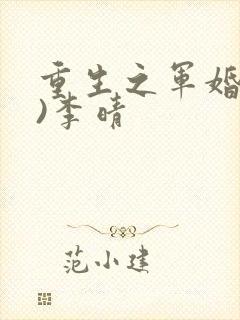 重生之军婚
)李晴
范小建